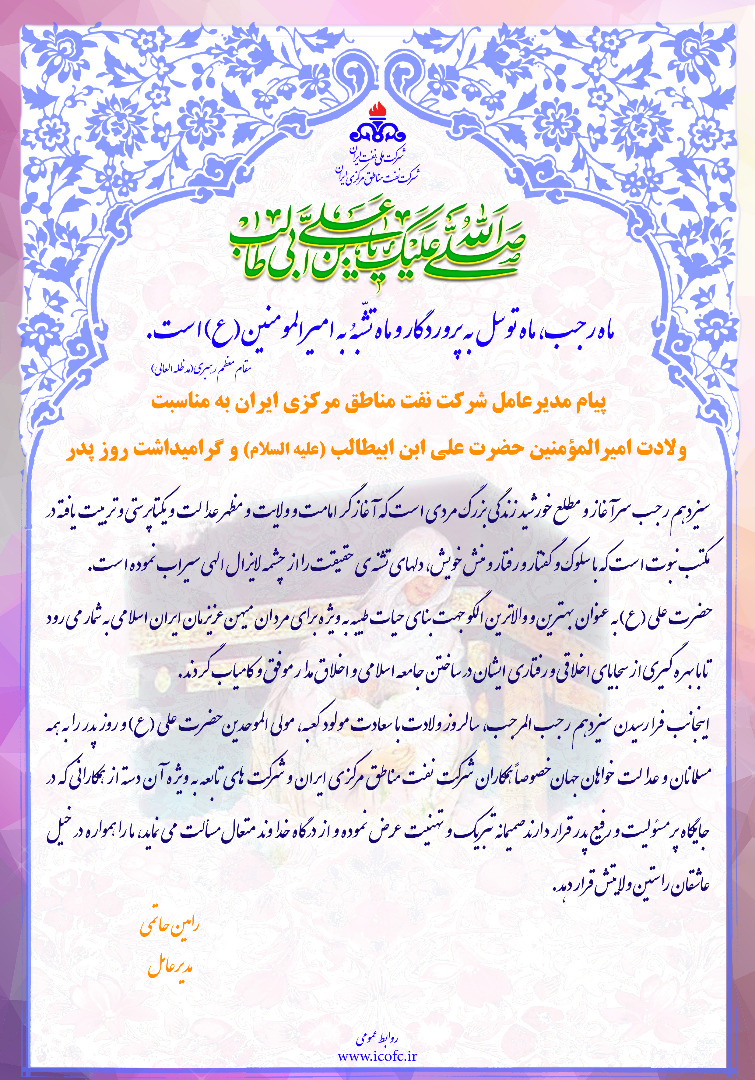 شرکت ملی نفت ایران
شرکت نفت مناطق مرکزی ایران
صلی الله علیک یا علی بن ابی طالب
ماه رجب، ماه توسل به پروردگار و ماه تشبّه به امیرالمومنین (ع) است.
مقام معظم رهبری (مدظله العالی)
پیام مدیرعامل شرکت نفت مناطق مرکزی ایران به مناسبت
ولادت امیرالمؤمنین حضرت علی ابن ابیطالب (علیه السلام) و گرامیداشت روز پدر
سیزدهم رجب سرآغاز و مطلع خورشید زندگی بزرگ مردی است که آغازگر امامت و ولایت و مظهر عدالت و یکتاپرستی و تربیت یافته در
مکتب نبوت است که با سلوک و گفتار و رفتار و منش خویش، دلهای تشنه‌ی حقیقت را از چشمه لایزال الهی سیراب نموده است.
حضرت علی (ع) به عنوان بهترین و والاترین الگو جهت بنای حیات طیبه به ویژه برای مردان میهن عزیزمان ایران اسلامی به شمار می رود
تا با بهره گیری از سجایای اخلاقی و رفتاری ایشان در ساختن جامعه اسلامی و اخلاق مدار موفق و کامیاب گردند.
اینجانب فرا رسیدن سیزدهم رجب المرجب، سالروز ولادت با سعادت مولود کعبه، مولی الموحدین حضرت علی (ع) و روز پدر را به همه
مسلمانان و عدالت خواهان جهان خصوصاً همکاران شرکت نفت مناطق مرکزی ایران و شرکت های تابعه به ویژه آن دسته از همکارانی که در
جایگاه پر مسئولیت و رفیع پدر قرار دارند صمیمانه تبریک و تهنیت عرض نموده و از درگاه خداوند متعال مسألت می نماید، ما را همواره در خیل
عاشقان راستین ولایتش قرار دهد.
رامین حاتمی
مدیرعامل
روابط عمومی
www.icofc.ir